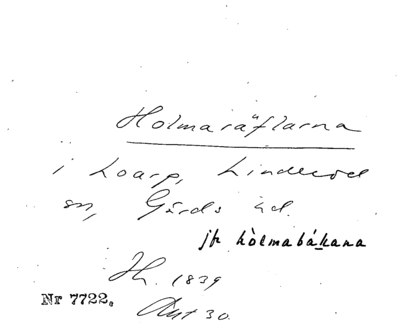 Holmaräflarna
i Loarp, Linderöd
sn, Gärds hd.
jfr hòlmabákana
Hh. 1839
Nr 7722.
Akt 30.